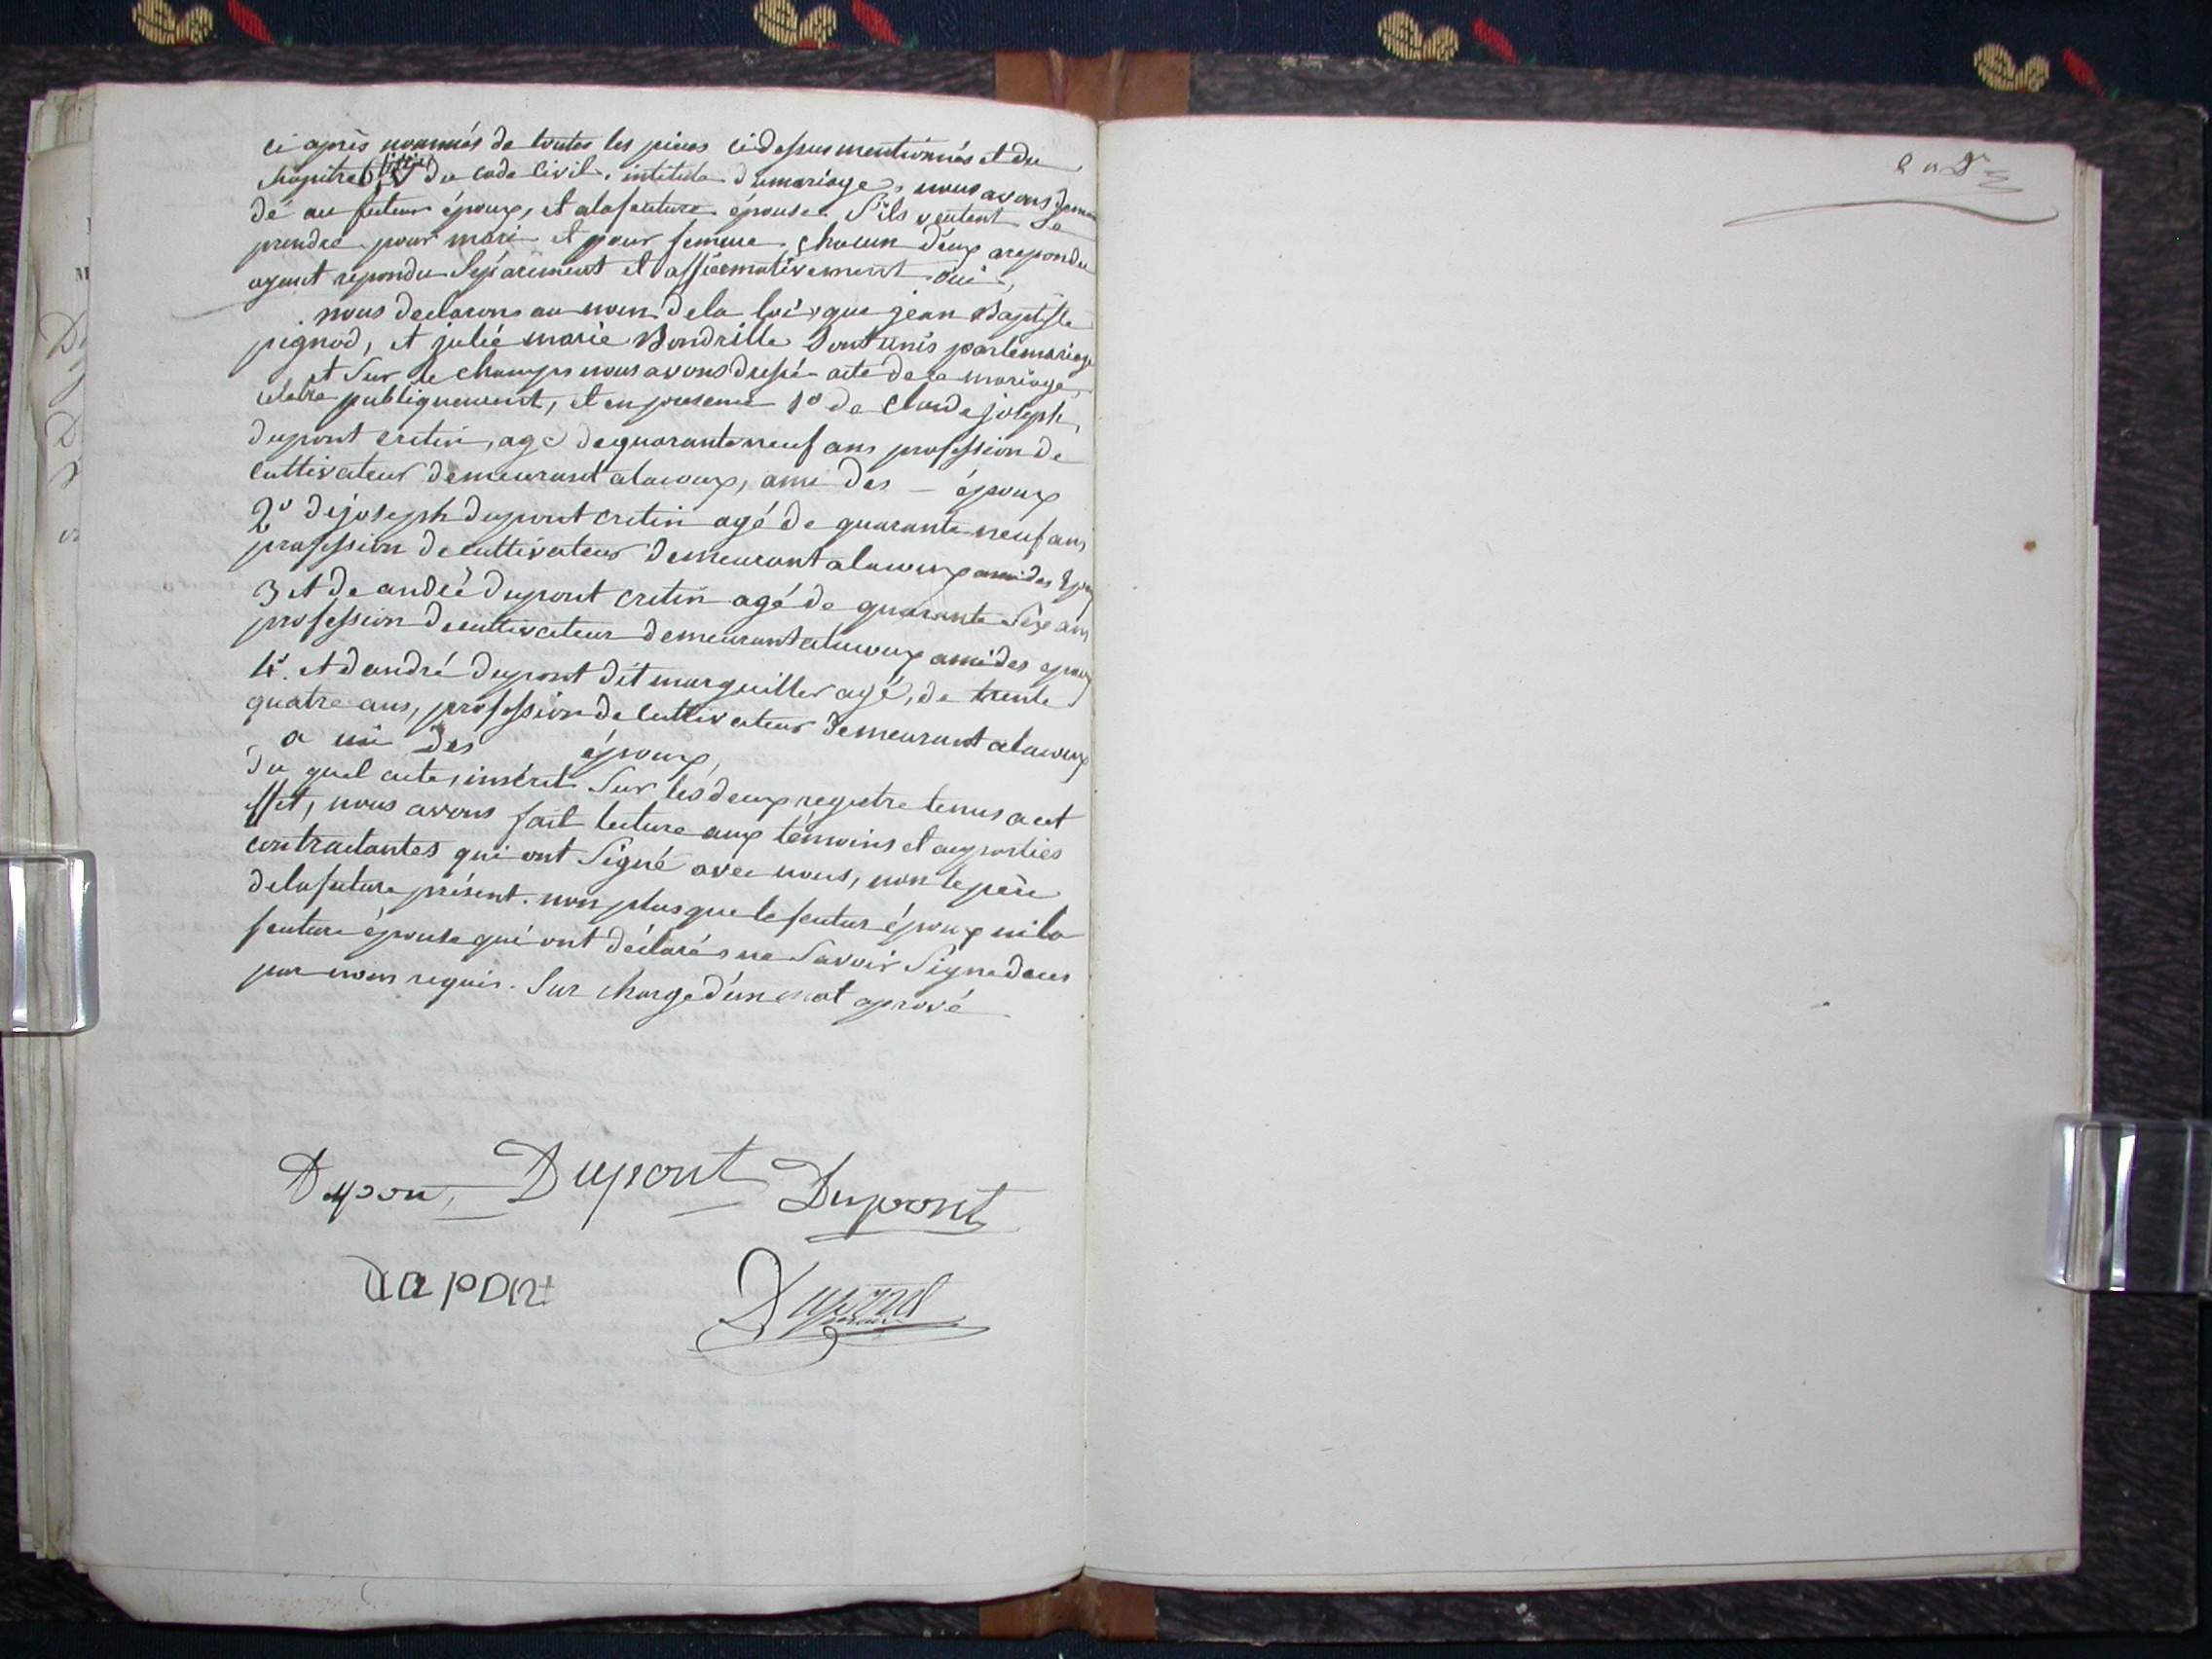 ci après nommés de toutes les pieces cidessus mentionnés et du
chapitre du code civil, intitulé dumariage, nous avons deman
dé au futeur époux, et alafeuture épouse S'ils veulent Se
prendre pour mari et pour femme chacun d'eux arepondu
ayant repondu Séparément et affirmativement oui,
nous declarons au nom dela loi, que jean Baptiste
pignod, et julie marie Bondrille Sont unis parlemariage
et Sur le champs nous avons dressé acte de ce mariage,
célébré publiquement, et en presence 1º de Claude joseph
dupont cretin, age dequarante neuf ans profession de
cultivateur demeurant alamoux, ami des – époux
2º dejoseph dupont cretin agé de quarante neuf ans
profession decultivateur demeurant alamoux ami des Epoux
3 et de andré dupont cretin agé de quarante Six ans
profession decultivateur demeurant alamoux ami des epoux
4º. et dandré dupont dit marguiller agé, de trente
quatre ans, profession de Cultivateur demeurant alamoux
a mi des époux,
du quel acte, inscrit Sur les deux registre tenus a cet
effet, nous avons fait lecture aux témoins et auxparties
contractantes qui ont Signé avec nous, non le père
delafuture présent. non plus que le feutur époux ni la
feuture épouse qui ont déclarés ne Savoir Signe
par nous requis. Sur charge d'un mot aprové
Dupon, Dupont Dupont
dupont Dupont